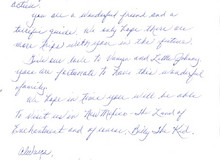 active.
you are a wonderful friend and a
terrific guide. We only hope there are
more trips with you in the future.
Give our love to and little Johnny
you are fortunate to have this wonderful
family.
We hope in time you will be able
to visit us in New Mexico - The Land of
Enchantment and of course, Billy The Kid.